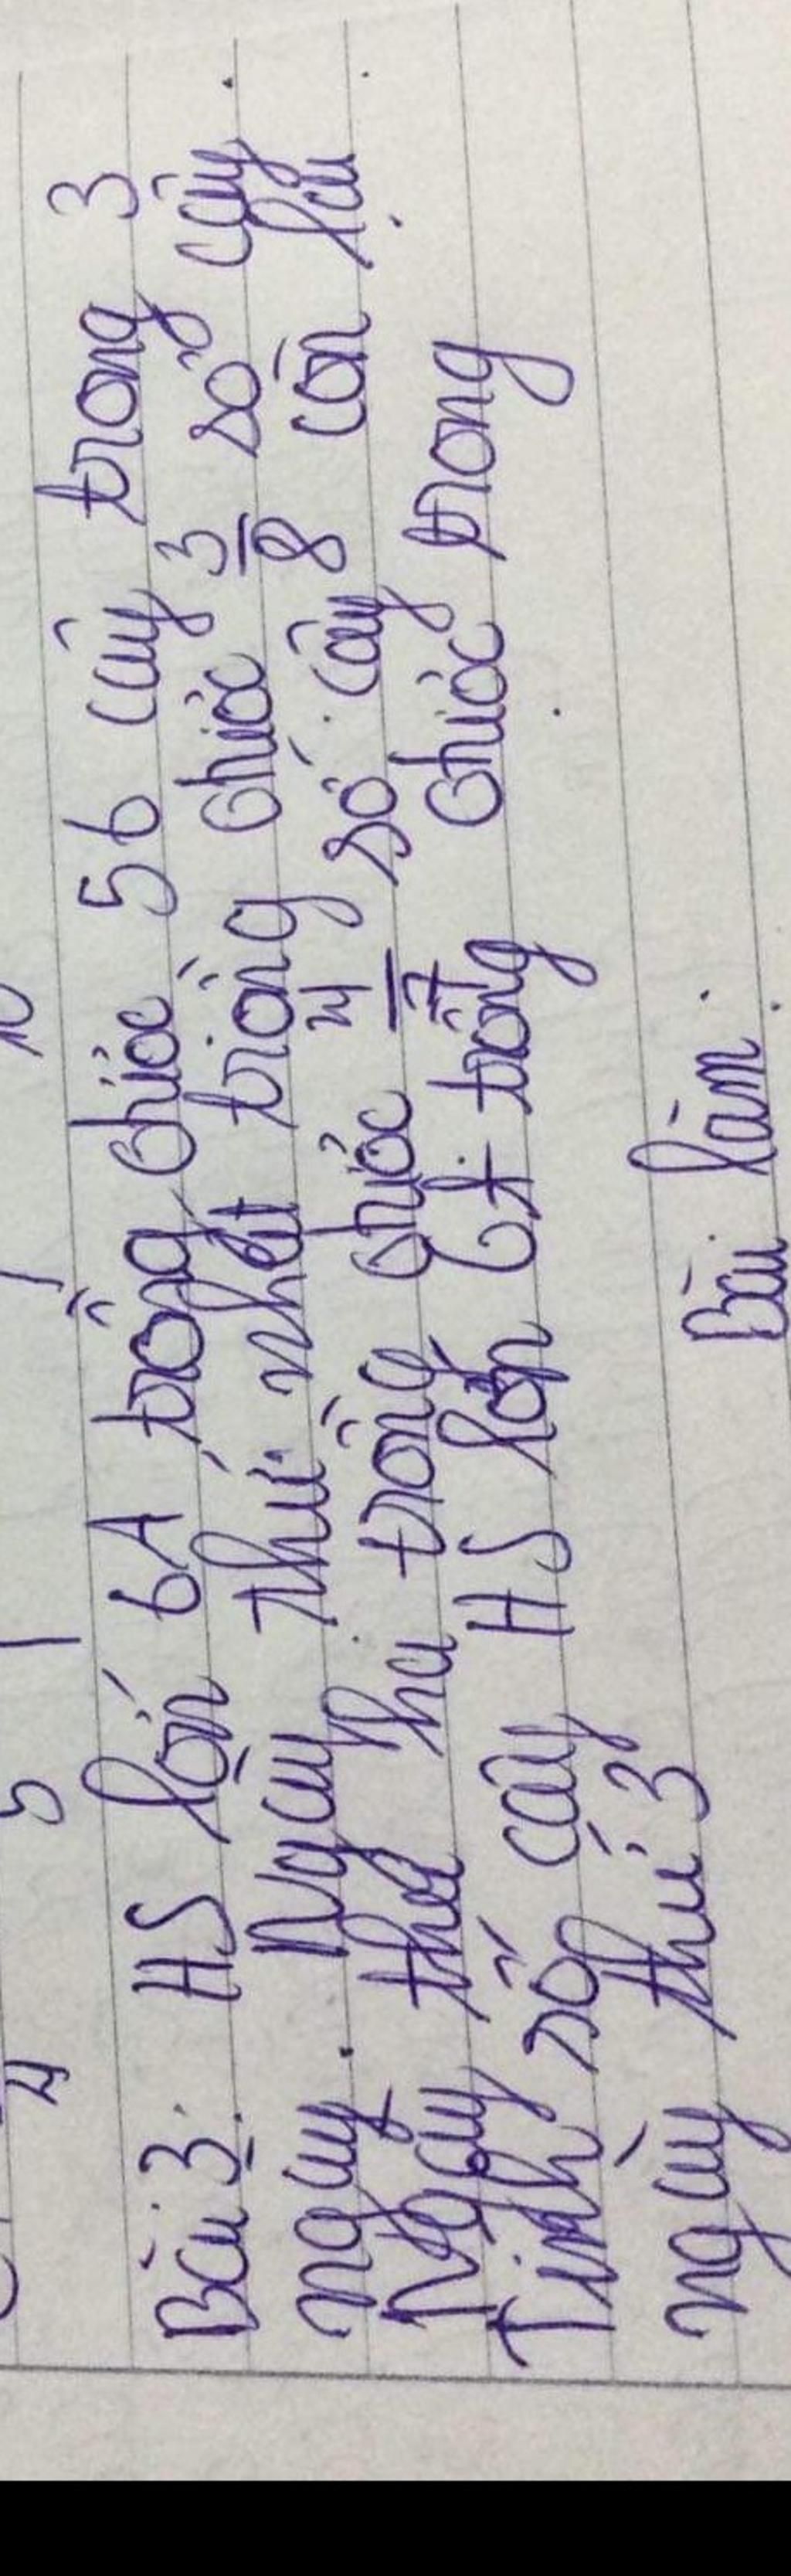 Bài 3: HS lớp 6A trồng được 56 cây trong 3
ngày. Ngày thứ nhất trồng được 3/8 số cây.
Ngày thứ hai trồng được 4/7 số cây còn lại.
Tính số cây HS lớp 6A trồng được trong
ngày thứ 3
Bài làm.